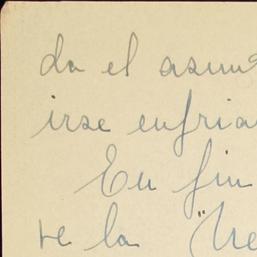 da el asun
irse enfria
En fin
te la "Ne